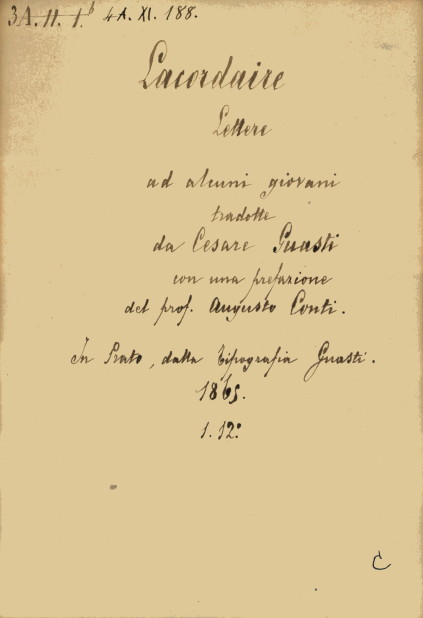 3A. II. 1.b 4A. XI. 188.
Lacordaire
Lettere
ad alcuni giovani
tradotte
da Cesare Guasti
con una prefazione
del prof. Augusto Conti.
In Prato, dalla tipografia Guasti.
1865.
1. 12º
C